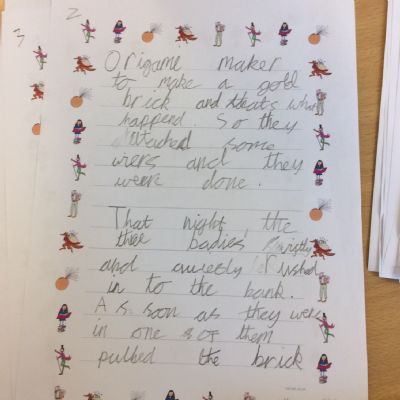 3
2
Origame maker
to make a gold
brick and that's what
happend. So they
attached some
wiers and they
were done.
That night, the
thee badies,
and quietly rushed
in to the bank.
As soon as they were
in one of them
pulled the brick